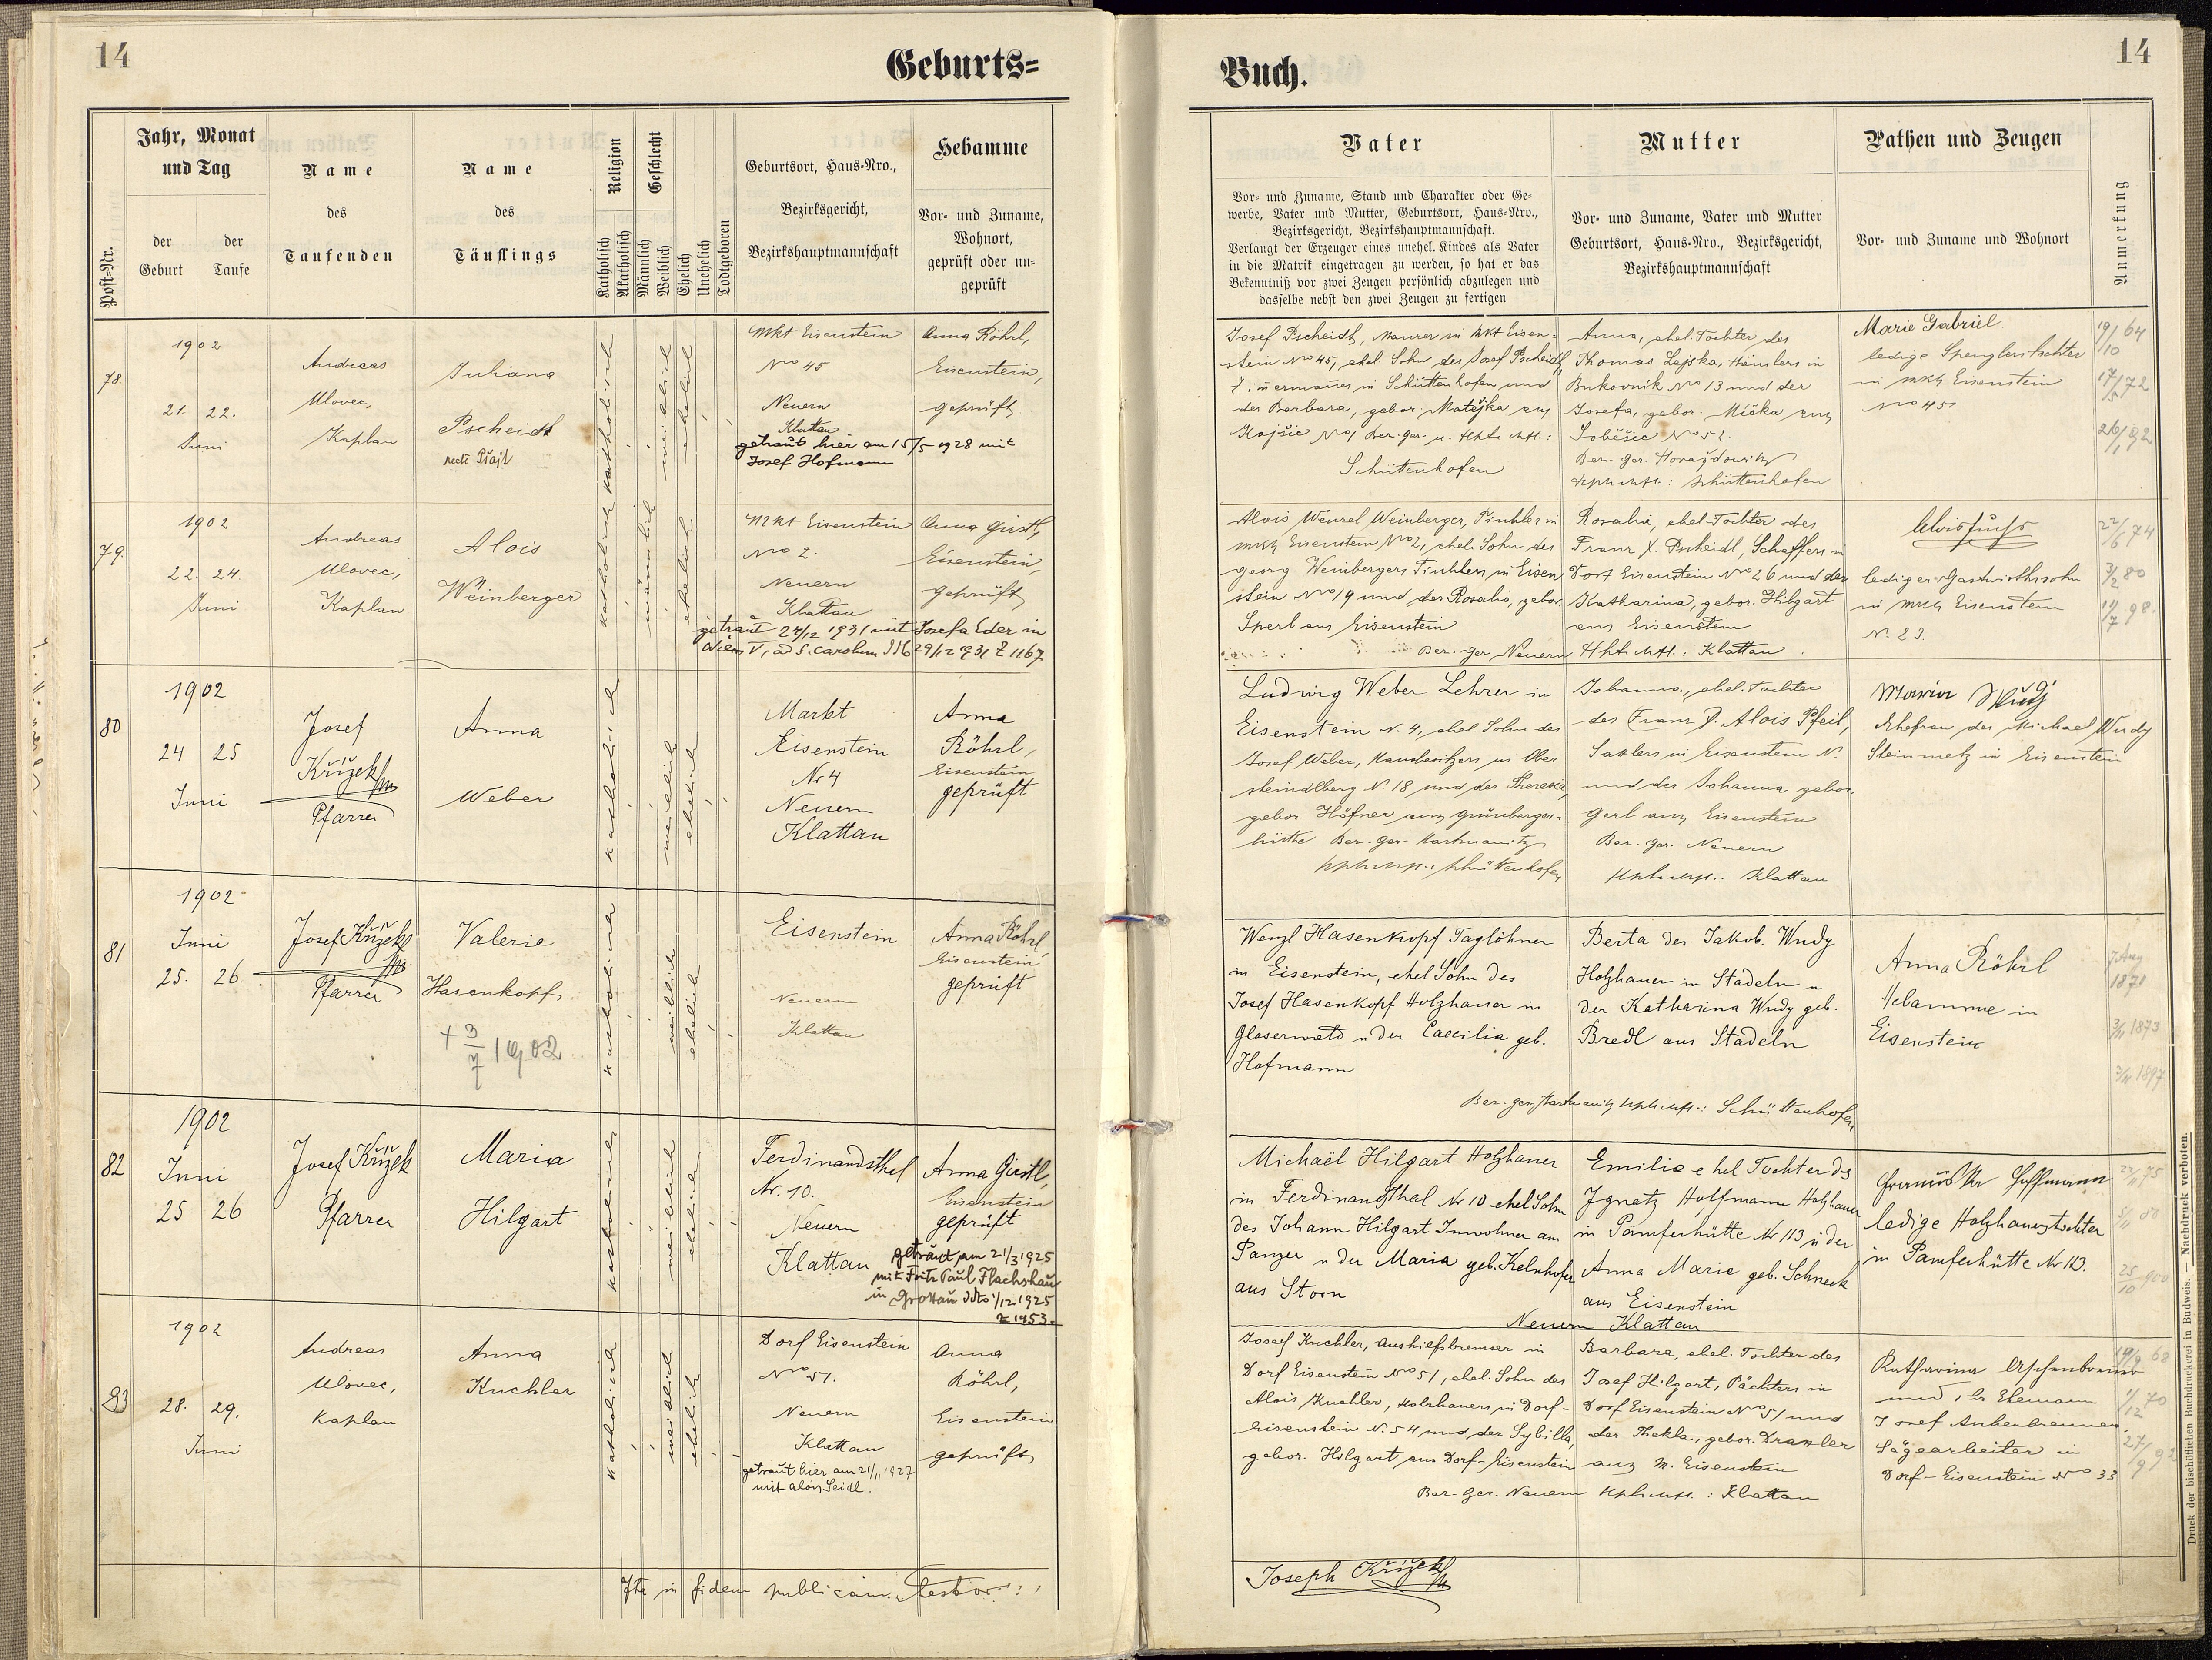 14
Geburts=
Post-Nr.
Jahr, Monat
und Tag
der
Geburt
der
Taufe
Name
des
Taufenden
Name
des
Täuflings
Religion
Katholisch
Akatholisch
Geschlecht
Männlich
Weiblich
Ehelich
Unehelich
Todtgeboren
Geburtsort, Haus-Nro.,
Bezirksgericht,
Bezirkshauptmannschaft
Hebamme
Vor- und Zuname,
Wohnort,
geprüft oder un-
geprüft
78.
1902
21. 22.
Juni
Andreas
Ulovec,
Kaplan
Juliana
Pscheidt
recte
katholisch
weiblich
ehelich
Mkt Eisenstein
No 45
Neuern
Klattau
getraut hier am 15/5 1928 mit
Josef Hofmann
Anna Röhrl,
Eisenstein,
geprüft
79.
1902
22. 24.
Juni
Andreas
Ulovec,
Kaplan
Alois
Weinberger
katholisch
männlich
ehelich
Mkt Eisenstein
No 2.
Neuern
Klattau
getraut 27/12 1931 mit Josefa Eder in
Wien V, ad S. Carolum 29/12 1931 Z 1167
Anna Girstl,
Eisenstein,
geprüft
80
1902
24 25
Juni
Josef
Křížek
Pfarrer
Anna
Weber
katholisch
weiblich
ehelich
Markt
Eisenstein
Nr 4
Neuern
Klattau
Anna
Röhrl,
Eisenstein
geprüft
81
1902
Juni
25. 26.
Josef Křížek
Pfarrer
Valerie
Hasenkopf
+ 3/7 1902
weiblich
ehelich
Eisenstein
Neuern
Klattau
Anna Röhrl
Eisenstein
geprüft
82
1902
Juni
25 26
Josef Křížek
Pfarrer
Maria
Hilgart
weiblich
ehelich
Ferdinandsthal
Nr. 10.
Neuern
Klattau
Anna Girstl,
Eisenstein
geprüft
getraut am 21/3 1925
mit Fritz Paul Flachshau
in Grottau ddto 1/12 1925
Z 1953.
83
1902
28. 29.
Juni
Andreas
Ulovec,
Kaplan
Anna
Kuchler
katholisch
weiblich
ehelich
Dorf Eisenstein
No 51.
Neuern
Klattau
getraut hier am 21/11 1927
mit Alois Seidl.
Anna
Röhrl,
Eisenstein
geprüft
Ita in fidem publicam. testor
Buch.
14
Vater
Vor- und Zuname, Stand und Charakter oder Ge-
werbe, Vater und Mutter, Geburtsort, Haus-Nro.,
Bezirksgericht, Bezirkshauptmannschaft.
Verlangt der Erzeuger eines unehel. Kindes als Vater
in die Matrik eingetragen zu werden, so hat er das
Bekenntniß vor zwei Zeugen persönlich abzulegen und
dasselbe nebst den zwei Zeugen zu fertigen
Mutter
Vor- und Zuname, Vater und Mutter
Geburtsort, Haus-Nro., Bezirksgericht,
Bezirkshauptmannschaft
Pathen und Zeugen
Vor- und Zuname und Wohnort
Anmerkung
Josef Pscheidt, Maurer in Mkt Eisen-
stein No 45, ehel. Sohn des Josef Pscheidt,
Zimermanns in Schüttenhofen und
der Barbara, gebor. Matějka aus
Kojšic No 1 Bez. Ger. u.
Schüttenhofen
Anna, ehel. Tochter des
Thomas Lejska, Häuslers in
Bukovnik No 13 und der
Josefa, gebor. Mička aus
Soběšic No 52.
Bez. Ger. Horaždowitz
Schüttenhofen
Marie Gabriel
ledige Spenglerstochter
in Mkt Eisenstein
No 45
19/10 64
17/5 72
26/1 92
Alois Wenzel Weinberger, Tischler in
Mkt Eisenstein No 2, ehel. Sohn des
Georg Weinbergers Tischlers in Eisen
stein No 19 und der Rosalia, gebor.
Sperl aus Eisenstein
Rosalia, ehel. Tochter des
Franz X. Pscheidl, Schaffers in
Dorf Eisenstein No 26 und der
Katharina, gebor. Hilgart
aus Eisenstein
Bez. Ger. Neuern Klattau
Alois Fuchs
lediger Gastwirthssohn
in Mkt Eisenstein
N. 23.
22/6 74
3/2 80
11/7 98.
Ludwig Weber Lehrer in
Eisenstein N. 4, ehel. Sohn des
Josef Weber, Hausbesitzers in Ober
steindlberg N. 18 und der Theresie,
gebor. Höfner aus Grünberger-
hütte Bez. Ger. Hartmanitz
Schüttenhofen
Johanna, ehel. Tochter
des Franz P. Alois Pfeil,
Sattlers in Eisenstein N.
und der Johanna gebor.
Gerl aus Eisenstein
Bez. Ger. Neuern
Klattau
Maria Wudy
Ehefrau des Michael Wudy
Steinmetz in Eisenstein
Wenzl Hasenkopf Taglöhner
in Eisenstein, ehel Sohn des
Josef Hasenkopf Holzhauer in
Glaserwald u der Caecilia geb.
Hofmann
Berta des Jakob. Wudy
Holzhauer in Stadeln u
der Katharina Wudy geb.
Bredl aus Stadeln
Bez. ger. Hartmanitz Schüttenhofen
Anna Röhrl
Hebamme in
Eisenstein
7 Aug
1871
1873
1897
Michaël Hilgart Holzhauer
in Ferdinandsthal Nr 10 ehel Sohn
des Johann Hilgart Inwohner am
Panzer u der Maria geb. Kelnhofer
aus Storn
Emilie ehel Tochter des
Ignatz Hoffmann Holzhauer
in Pamferhütte Nr 113 u der
Anna Marie geb. Schneck
aus Eisenstein
Neuern Klattau
Franziska Hoffmann
ledige Holzhauerstochter
in Pamferhütte Nr 113.
23/11 75
5/11 80
25/10 900
Josef Kuchler, Aushilfsbremser in
Dorf Eisenstein No 51, ehel. Sohn des
Alois Kuchler, Holzhauers in Dorf-
Eisenstein N. 54 und der Sybilla,
gebor. Hilgart aus Dorf-Eisenstein
Barbara, ehel. Tochter des
Josef Hilgart, Pächters in
Dorf Eisenstein No 51 und
der Thekla, gebor. Draxler
aus M. Eisenstein
Bez. Ger. Neuern Klattau
Katharina Aschenbrenner
und ihr Ehemann
Josef Aschenbrenner
Sägearbeiter in
Dorf-Eisenstein No 33
19/9 68
1/12 70
27/9 92
Joseph Křížek
Druck der bischöflichen Buchdruckerei in Budweis. — Nachdruck verboten.